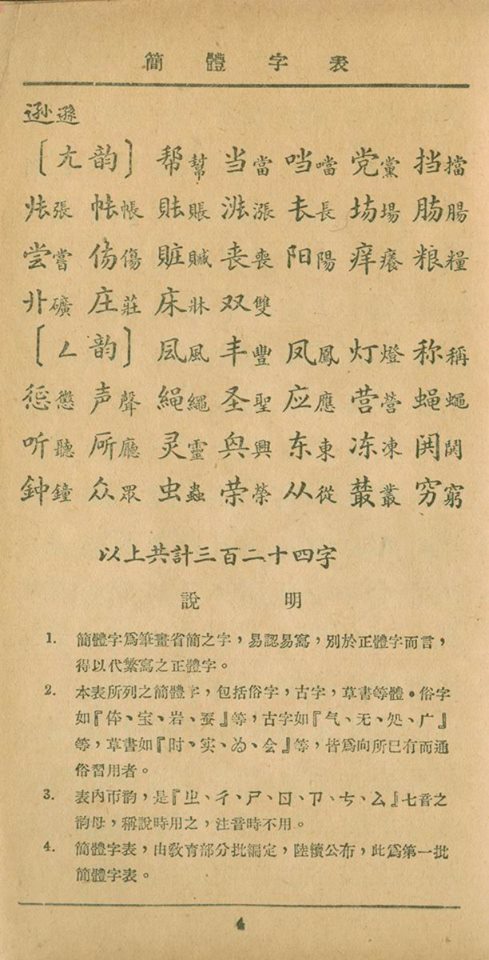 簡體字表
逊遜
〔ㄤ韵〕 帮幫 当當 噹 党黨 挡擋
張 帐帳 账賬 涨漲 長 場 肠腸
尝嘗 伤傷 赃贓 丧喪 阳陽 痒癢 粮糧
卝礦 庄莊 床牀 双雙
〔ㄥ韵〕 凨風 丰豐 凤鳳 灯燈 称稱
惩懲 声聲 繩 圣聖 应應 营營 蝇蠅
听聽 厛廳 灵靈 兴興 东東 冻凍 鬨
鈡鐘 众眾 虫蟲 荣榮 从從 叢 穷窮
以上共計三百二十四字
說明
1. 簡體字爲筆畫省簡之字，易認易寫，別於正體字而言，
得以代繁寫之正體字。
2. 本表所列之簡體字，包括俗字，古字，草書等體。俗字
如『体、宝、岩、蚕』等，古字如『气、无、处、广』
等，草書如『时、实、为、会』等，皆爲向所已有而通
俗習用者。
3. 表內帀韵，是『ㄓ、ㄔ、ㄕ、ㄖ、ㄗ、ㄘ、ㄙ』七音之
韵母，稱說時用之，注音時不用。
4. 簡體字表，由敎育部分批編定，陸續公布，此爲第一批
簡體字表。
4